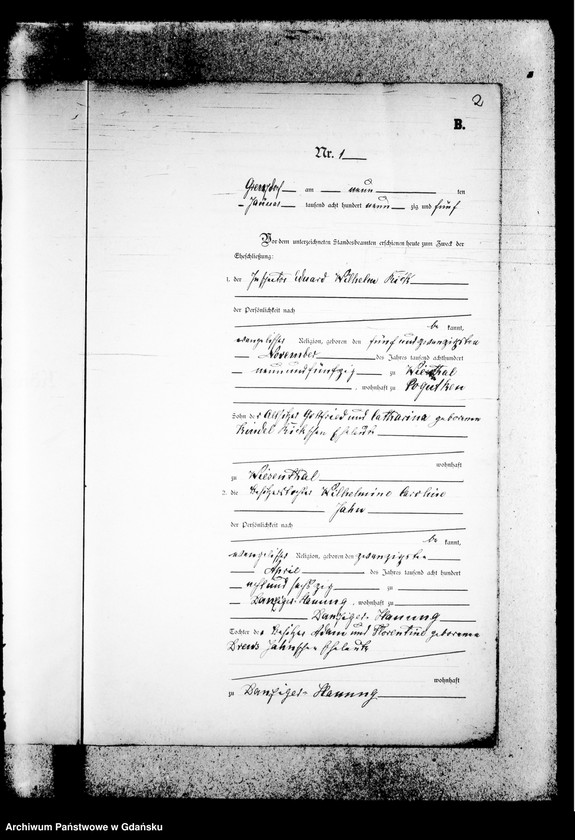 2
B.
Nr. 1
am neun ten
Januar tausend acht hundert neun zig und fünf
Vor dem unterzeichneten Standesbeamten erschienen heute zum Zweck der
Eheschließung:
1. der Inspector Eduard Wilhelm
der Persönlichkeit nach
be kannt,
evangelischer Religion, geboren den fünfundzwanzigsten
November des Jahres tausend achthundert
neunundfünfzig zu Wiesenthal
, wohnhaft zu Pogutken
Sohn des Altsitzers Gottfried und Catharina geborenen
Eheleute
wohnhaft
zu Wiesenthal
2. die Besitzertochter Wilhelmine Caroline
Jahn
der Persönlichkeit nach
be kannt,
evangelischer Religion, geboren den zwanzigsten
April des Jahres tausend acht hundert
achtundsechszig zu
, wohnhaft zu
Tochter des Besitzers Adam und Florentine geborenen
Drews Jahnschen Eheleute
wohnhaft
zu
Archiwum Państwowe w Gdańsku